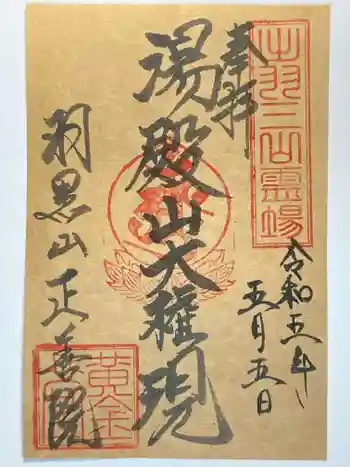 出羽三山霊場
奉拝
令和五年
五月五日
湯殿山大権現
羽黒山正善院
黄金堂